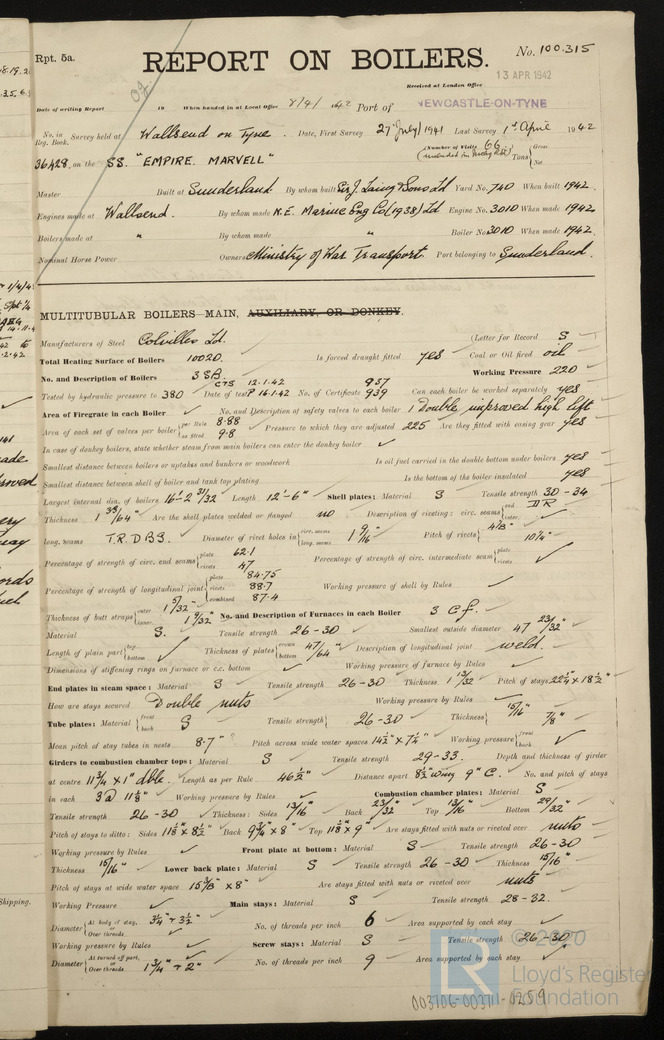 Rpt. 5a.
REPORT ON BOILERS.
No. 100.315
Received at London Office
13 APR 1942
Date of writing Report 19 When handed in at Local Office 8/4/ 1942 Port of NEWCASTLE-ON-TYNE
No. in Reg. Book. Survey held at Wallsend on Tyne. Date, First Survey 27 July/1941 Last Survey 1st April 1942
(Number of Visits 66.)
36428. on the SS. "EMPIRE MARVELL" Tons { Gross Net
Master Built at Sunderland By whom built Sir J. Laing & Sons Ld Yard No. 740 When built 1942.
Engines made at Wallsend. By whom made N.E. Marine Eng Co (1938) Ld Engine No. 3010 When made 1942
Boilers made at " By whom made " Boiler No. 3010 When made 1942.
Nominal Horse Power Owners Ministry of War Transport. Port belonging to Sunderland.
MULTITUBULAR BOILERS MAIN, AUXILIARY, OR DONKEY.
Manufacturers of Steel Colvilles Ld. (Letter for Record S
Total Heating Surface of Boilers 10020. Is forced draught fitted yes Coal or Oil fired oil
No. and Description of Boilers 3 SB. Working Pressure 220
Tested by hydraulic pressure to 380 Date of test CTS 12.1.42 P 16.1.42 No. of Certificate 937 939 Can each boiler be worked separately yes
Area of Firegrate in each Boiler ✓ No. and Description of safety valves to each boiler 1 Double improved high lift
Area of each set of valves per boiler { per Rule 8.88 as fitted 9.8 Pressure to which they are adjusted 225 Are they fitted with easing gear yes
In case of donkey boilers, state whether steam from main boilers can enter the donkey boiler ✓
Smallest distance between boilers or uptakes and bunkers or woodwork Is oil fuel carried in the double bottom under boilers yes
Smallest distance between shell of boiler and tank top plating Is the bottom of the boiler insulated yes
Largest internal dia. of boilers 16'-2 31/32" Length 12'-6" Shell plates: Material S Tensile strength 30-34
Thickness 1 33/64" Are the shell plates welded or flanged no Description of riveting: circ. seams { end DR inter.
long. seams T.R.D.B.S. Diameter of rivet holes in { circ. seams long. seams 1 9/16" Pitch of rivets { 4 7/8" 10 1/4"
Percentage of strength of circ. end seams { plate 62.1 rivets 47 Percentage of strength of circ. intermediate seam { plate rivets ✓
Percentage of strength of longitudinal joint { plate 84.75 rivets 88.7 combined 87.4 Working pressure of shell by Rules ✓
Thickness of butt straps { outer 1 5/32" inner 1 9/32" No. and Description of Furnaces in each Boiler 3 C.f.
Material S. Tensile strength 26-30 Smallest outside diameter 47 23/32"
Length of plain part { top bottom ✓ Thickness of plates { crown bottom 47/64" Description of longitudinal joint weld.
Dimensions of stiffening rings on furnace or c.c. bottom ✓ Working pressure of furnace by Rules ✓
End plates in steam space: Material S Tensile strength 26-30 Thickness 1 13/32 Pitch of stays 22 1/4 x 18 1/2"
How are stays secured Double nuts Working pressure by Rules ✓
Tube plates: Material { front back S Tensile strength { 26-30 Thickness { 15/16" 7/8"
Mean pitch of stay tubes in nests 8.7" Pitch across wide water spaces 14 1/2" x 7 1/4" Working pressure { front back ✓
Girders to combustion chamber tops: Material S Tensile strength 29-33. Depth and thickness of girder
at centre 11 3/4 x 1" dble. Length as per Rule 46 1/2" Distance apart 8 1/2 wing 9" C. No. and pitch of stays
in each 3 @ 11 1/8" Working pressure by Rules ✓ Combustion chamber plates: Material S
Tensile strength 26-30 Thickness: Sides 13/16" Back 23/32" Top 13/16" Bottom 29/32"
Pitch of stays to ditto: Sides 11 1/8 x 8 1/2" Back 9 3/4 x 8" Top 11 1/8 x 9" Are stays fitted with nuts or riveted over nuts
Working pressure by Rules ✓ Front plate at bottom: Material S Tensile strength 26-30
Thickness 15/16" Lower back plate: Material S Tensile strength 26-30 Thickness 15/16"
Pitch of stays at wide water space 15 3/8 x 8" Are stays fitted with nuts or riveted over nuts
Working Pressure ✓ Main stays: Material S Tensile strength 28-32.
Diameter { At body of stay, or Over threads 3 1/4" + 3 1/2" No. of threads per inch 6 Area supported by each stay ✓
Working pressure by Rules ✓ Screw stays: Material S Tensile strength 26-30
Diameter { At turned off part, or Over threads 1 3/4" + 2" No. of threads per inch 9 Area supported by each stay ✓
© 2020
Lloyd's Register
Foundation
003706-003711-0259